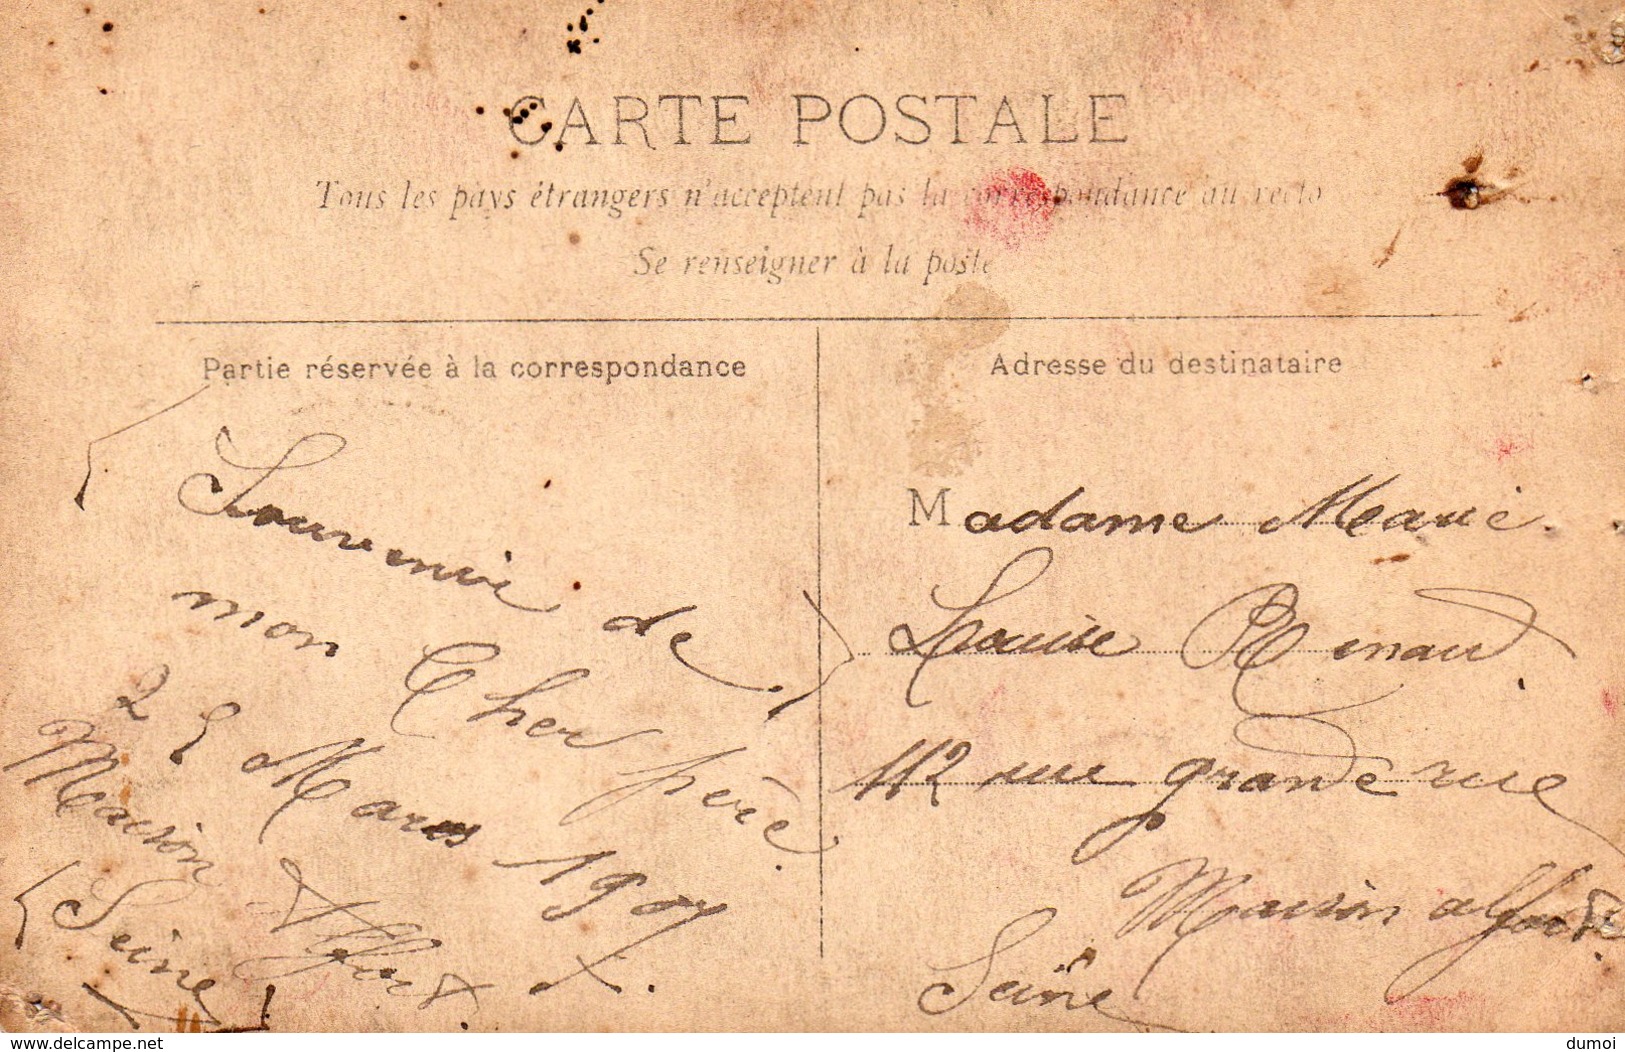 CARTE POSTALE
Tous les pays étrangers n'acceptent pas la correspondance au recto
Se renseigner à la poste
Partie réservée à la correspondance
Souvenir de
mon Cher père.
25 Mars 1907
Maison Alfort.
(Seine)
Adresse du destinataire
Madame Marie
Louise Renaud.
112 rue grande rue
Maison alfort.
Seine
www.delcampe.net
dumoi